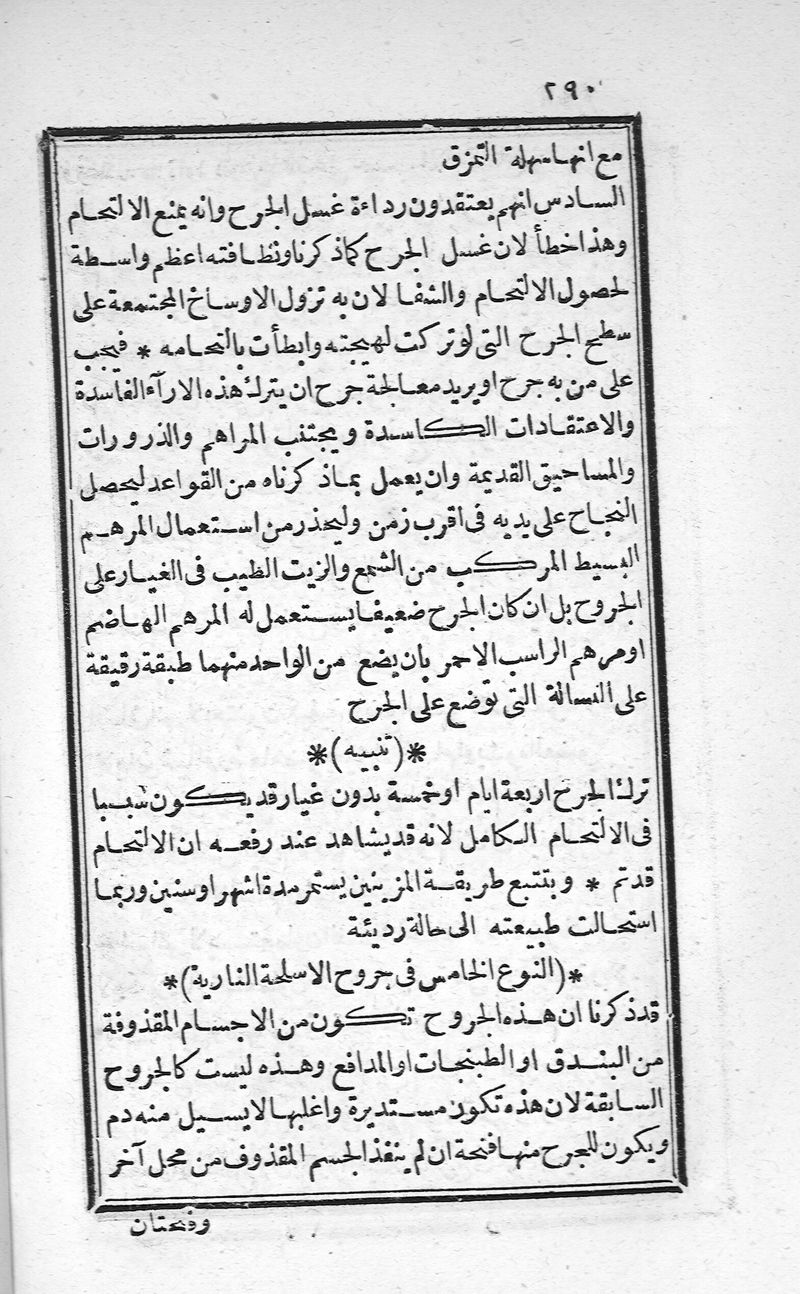 ٢٩٠
مع انها سهلة التمزق
السادس انهم يعتقدون رداءة غسل الجرح وانه يمنع الالتحام
وهذا خطأ لان غسل الجرح كما ذكرنا ونظافته اعظم واسطة
لحصول الالتحام والشفا لان به تزول الاوساخ المجتمعة على
سطح الجرح التى لو تركت لهيجته وابطأت بالتحامه * فيجب
على من به جرح او يريد معالجة جرح ان يترك هذه الارآء الفاسدة
والاعتقادات الكاسدة ويجتنب المراهم والذرورات
والمساحيق القديمة وان يعمل بما ذكرناه من القواعد ليحصل
النجاح على يديه فى اقرب زمن وليحذر من استعمال المرهم
البسيط المركب من الشمع والزيت الطيب فى الغيار على
الجروح بل ان كان الجرح ضعيفا يستعمل له المرهم الهاضم
او مرهم الراسب الاحمر بان يضع من الواحد منهما طبقة رقيقة
على النسالة التى توضع على الجرح
*(تنبيه)*
ترك الجرح اربعة ايام او خمسة بدون غيار قد يكون سببا
فى الالتحام الكامل لانه قد يشاهد عند رفعه ان الالتحام
قد تم * وبتتبع طريقة المزينين يستمر مدة اشهر او سنين وربما
استحالت طبيعته الى حالة رديئة
*(النوع الخامس فى جروح الاسلحة النارية)*
قد ذكرنا ان هذه الجروح تتكون من الاجسام المقذوفة
من البندق او الطبنجات او المدافع وهذه ليست كالجروح
السابقة لان هذه تكون مستديرة واغلبها لا يسيل منه دم
ويكون للجرح منها فتحة ان لم ينفذ الجسم المقذوف من محل آخر
وفتحتان